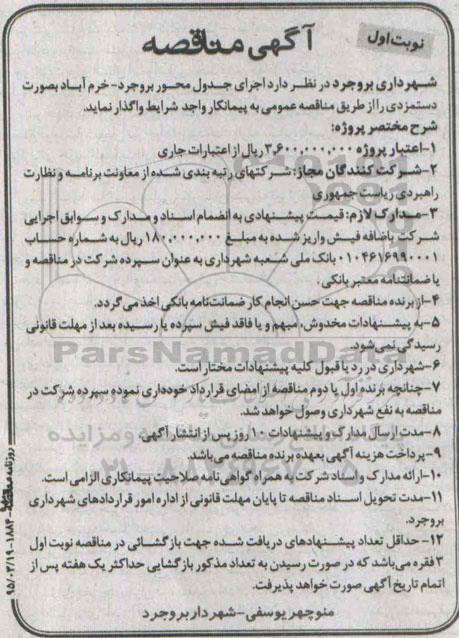 نوبت اول
آگهی مناقصه
شهرداری بروجرد در نظر دارد اجرای جدول محور بروجرد-خرم آباد بصورت
دستمزدی را از طریق مناقصه عمومی به پیمانکار واجد شرایط واگذار نماید.
شرح مختصر پروژه:
۱-اعتبار پروژه ۳,۶۰۰,۰۰۰,۰۰۰ ریال از اعتبارات جاری
۲-شرکت کنندگان مجاز: شرکتهای رتبه بندی شده از معاونت برنامه و نظارت
راهبردی ریاست جمهوری
۳-مدارک لازم: قیمت پیشنهادی به انضمام اسناد و مدارک و سوابق اجرایی
شرکت باضافه فیش واریز شده به مبلغ ۱۸۰,۰۰۰,۰۰۰ ریال به شماره حساب
۰۱۰۴۶۱۶۹۹۰۰۰۱ بانک ملی شعبه شهرداری به عنوان سپرده شرکت در مناقصه و
یا ضمانتنامه معتبر بانکی.
۴-از برنده مناقصه جهت حسن انجام کار ضمانت نامه بانکی اخذ می گردد.
۵-به پیشنهادات مخدوش، مبهم و یا فاقد فیش سپرده یا رسیده بعد از مهلت قانونی
رسیدگی نمی شود.
ParsNamadData
۶-شهرداری در رد یا قبول کلیه پیشنهادات مختار است.
۷-چنانچه برنده اول یا دوم مناقصه از امضای قرارداد خودداری نموده سپرده شرکت در
مناقصه به نفع شهرداری وصول خواهد شد.
۸-مدت ارسال مدارک و پیشنهادات ۱۰ روز پس از انتشار آگهی.
۹-پرداخت هزینه آگهی بعهده برنده مناقصه می باشد.
۱۰-ارائه مدارک و اسناد شرکت به همراه گواهی نامه صلاحیت پیمانکاری الزامی است.
۱۱-مدت تحویل اسناد مناقصه تا پایان مهلت قانونی از اداره امور قراردادهای شهرداری
بروجرد.
۱۲- حداقل تعداد پیشنهادهای دریافت شده جهت بازگشائی در مناقصه نوبت اول
۳ فقره می باشد که در صورت رسیدن به تعداد مذکور بازگشایی حداکثر یک هفته پس از
اتمام تاریخ آگهی صورت خواهد پذیرفت.
منوچهر یوسفی-شهردار بروجرد
۹۵/۰۳/۱۹-۱۸۸۴